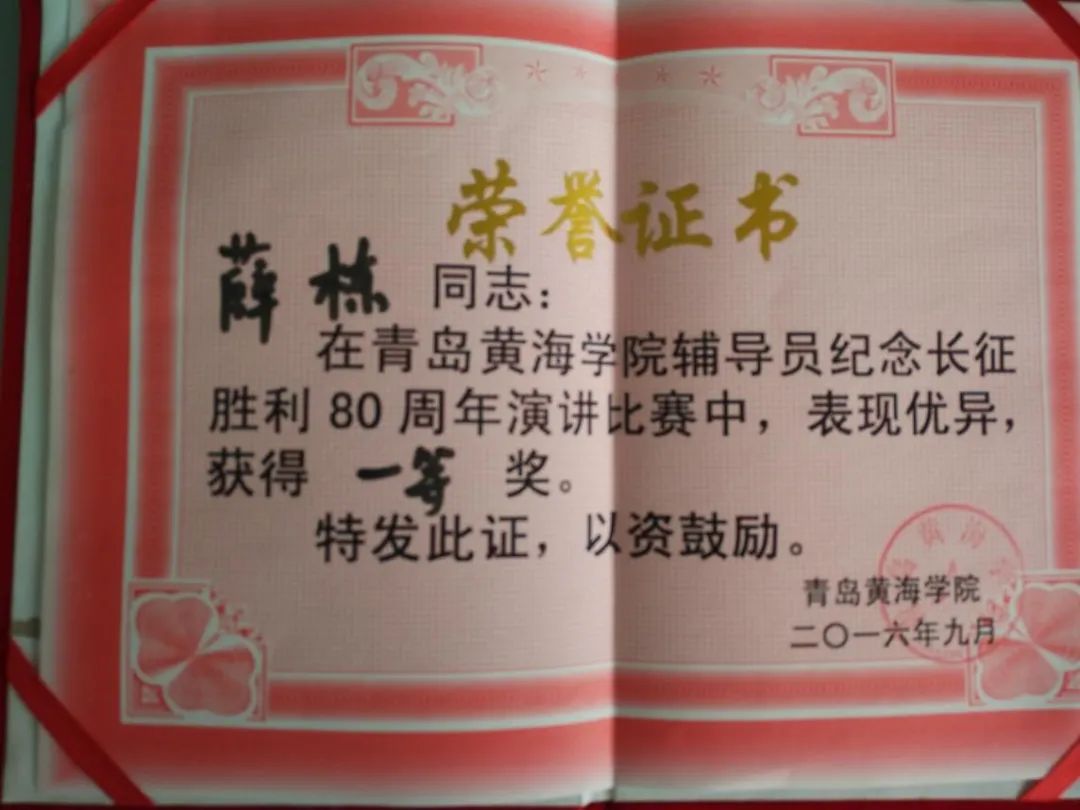 荣誉证书
薛栋 同志：
在青岛黄海学院辅导员纪念长征
胜利80周年演讲比赛中，表现优异，
获得 一等 奖。
特发此证，以资鼓励。
青岛黄海学院
二〇一六年九月